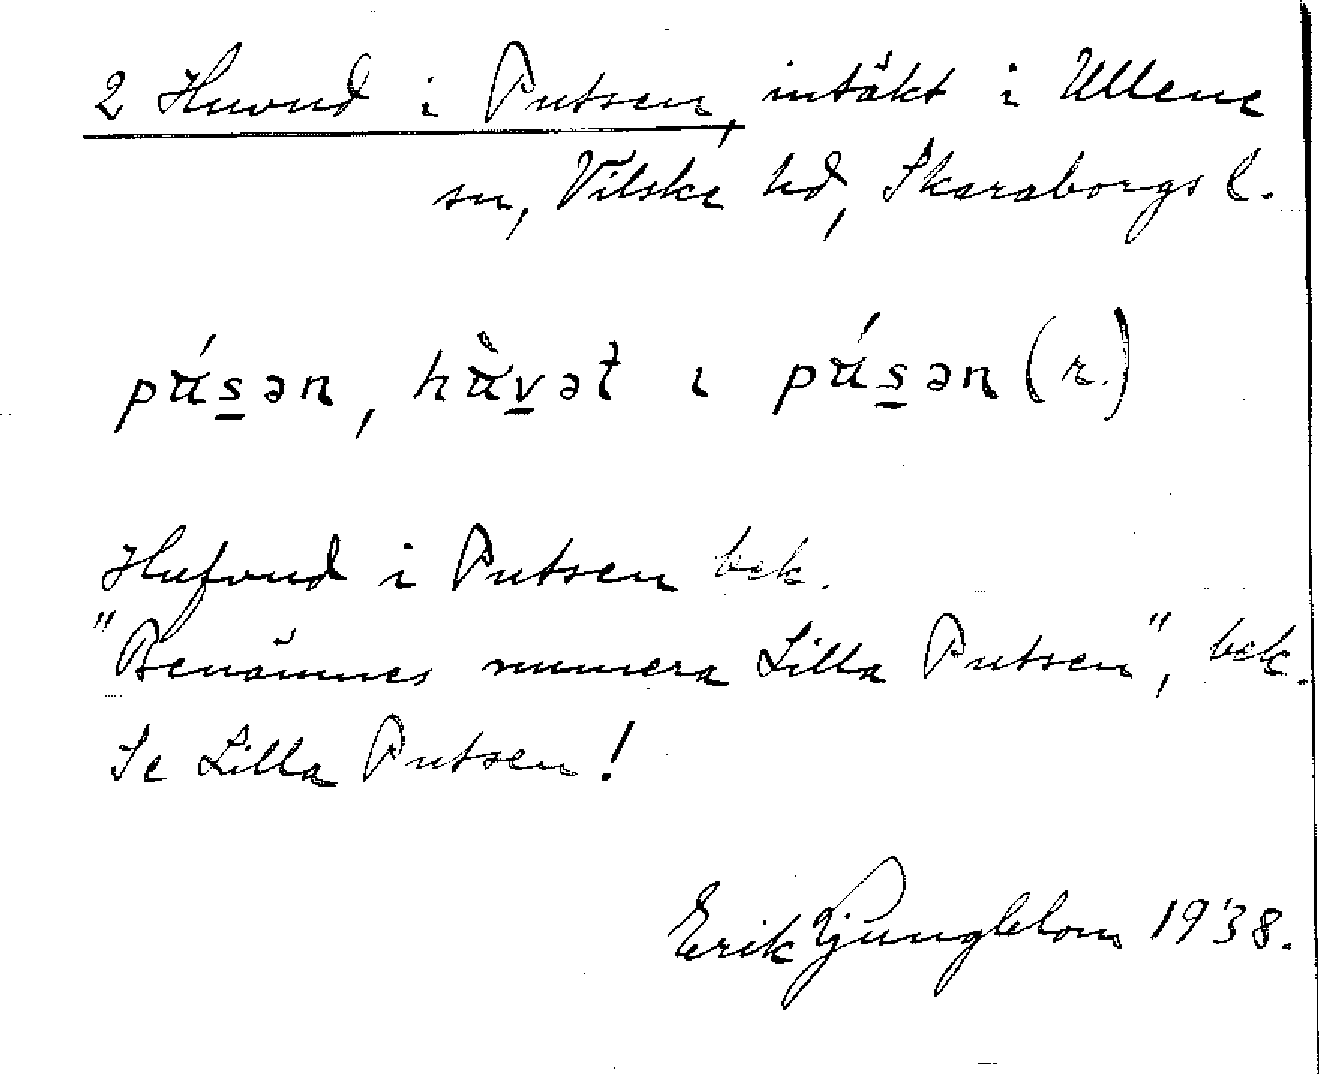 2 Huvud i Putsen, intäkt i Ullene
sn, Vilske hd, Skaraborgs l.
pʉ́sən, hʉ̀vət ɩ pʉ́sən (r.)
Hufvud i Putsen bek.
"Benämnes numera Lilla Putsen", bek.
Se Lilla Putsen!
Erik Ljungblom 1938.